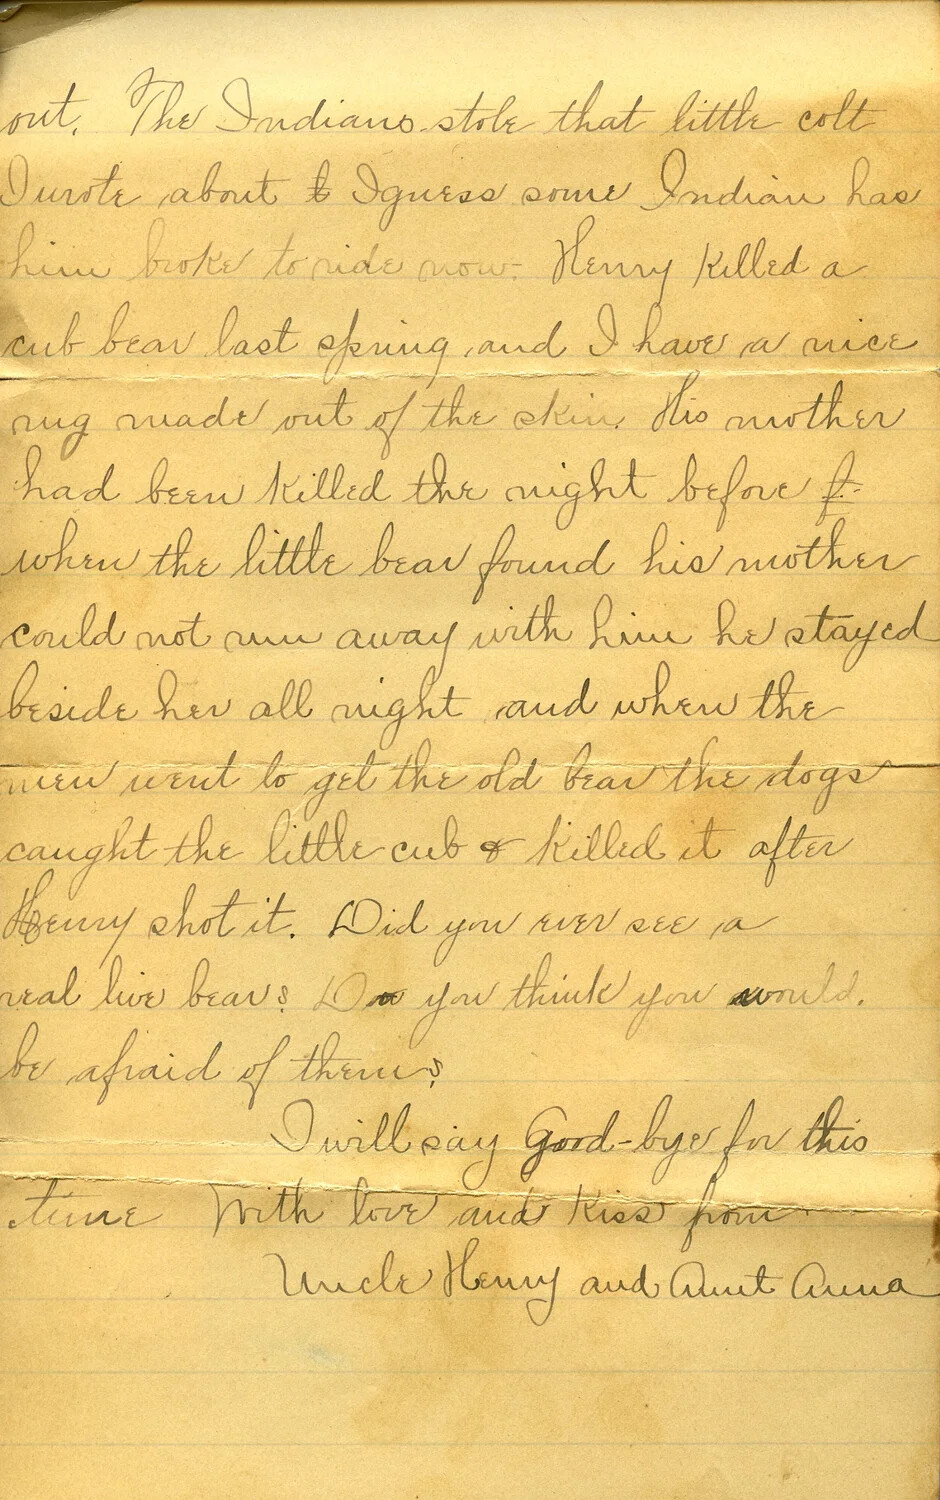 out. The Indians stole that little colt
I wrote about I guess some Indian has
him broke to ride now. Henry killed a
cub bear last spring and I have a nice
rug made out of the skin. His mother
had been killed the night before &
when the little bear found his mother
could not run away with him he stayed
beside her all night and when the
men went to get the old bear the dogs
caught the little cub & killed it after
Henry shot it. Did you ever see a
real live bear? Do you think you would
be afraid of them?
I will say Good-bye for this
time With love and kiss from
Uncle Henry and Aunt Anna